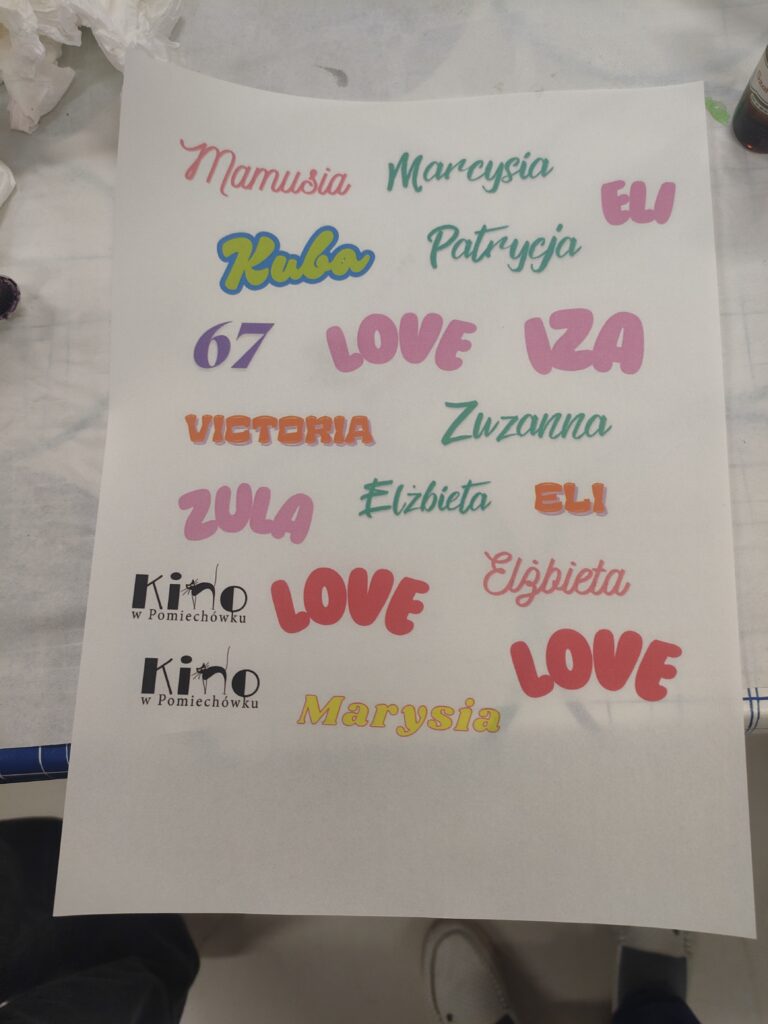 Mamusia
Marcysia
ELI
Kuba
Patrycja
67
LOVE
IZA
VICTORIA
Zuzanna
ZULA
Elżbieta
ELI
Kino
w Pomiechówku
LOVE
Elżbieta
Kino
w Pomiechówku
LOVE
Marysia